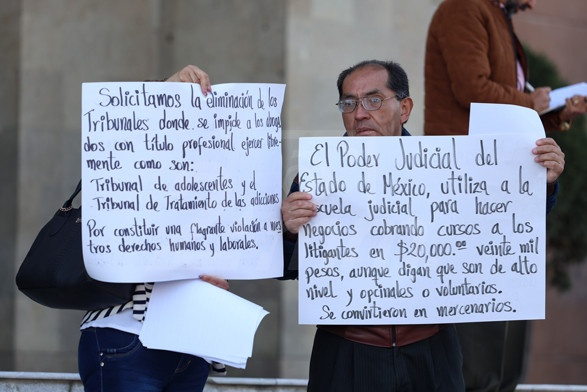 Solicitamos la eliminación de los
Tribunales donde se impide a los aboga
dos con título profesional ejercer libre-
mente como son:
Tribunal de adolescentes y el
Tribunal de Tratamiento de las adicciones
Por constituir una flagrante violación a nues
tros derechos humanos y laborales.
El Poder Judicial del
Estado de México, utiliza a la
escuela judicial para hacer
negocios cobrando cursos a los
litigantes en $20,000.00 veinte mil
pesos, aunque digan que son de alto
nivel y opcinales o voluntarios.
Se convirtieron en mercenarios.